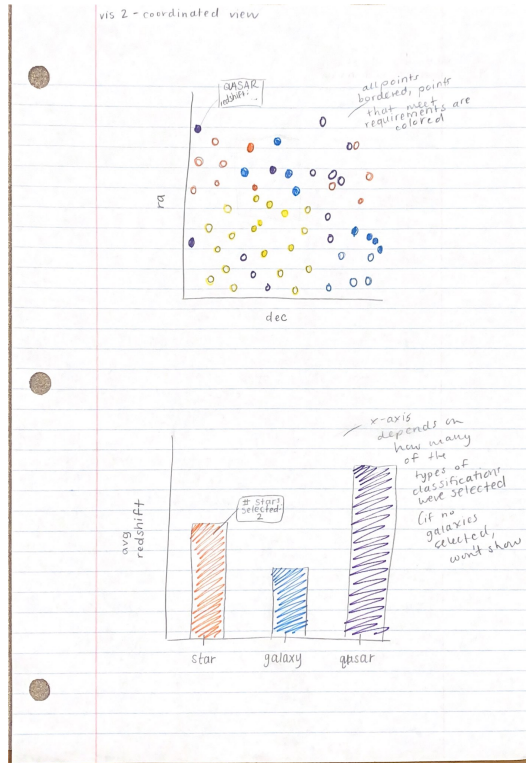 vis 2 - coordinated view
QASAR
redshift: ...
all points
bordered, points
that meet
requirements are
colored
ra
dec
x-axis
depends on
how many
of the
types of
classifications
were selected
(if no
galaxies
selected,
won't show
# stars
selected:
2
avg
redshift
star
galaxy
qasar